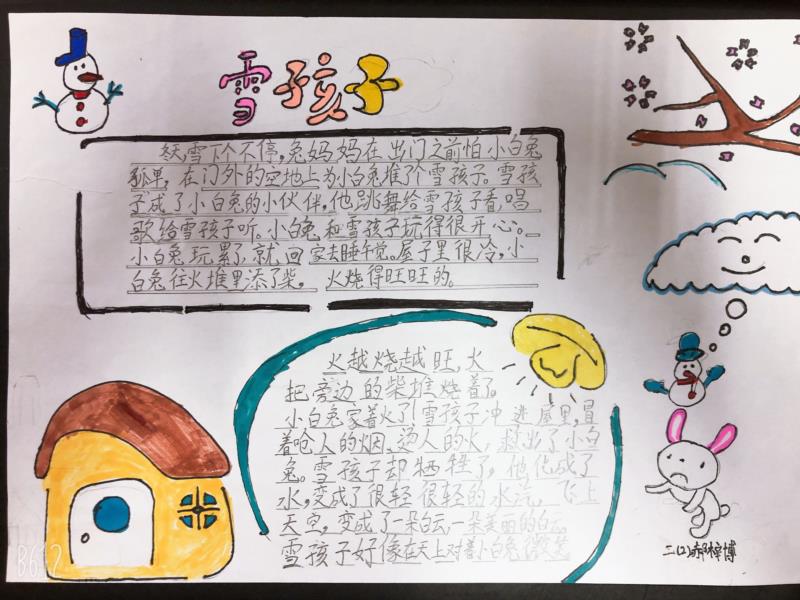 雪孩子
冬天,雪下个不停,兔妈妈在出门之前怕小白兔
孤单,在门外的空地上为小白兔堆了个雪孩子。雪孩
子成了小白兔的小伙伴,他跳舞给雪孩子看,唱
歌给雪孩子听,小白兔和雪孩子玩得很开心。
小白兔玩累了,就回家去睡午觉。屋子里很冷,小
白兔往火堆里添了柴。火烧得旺旺的。
火越烧越旺,火
把旁边的柴堆烧着了。
小白兔家着火了!雪孩子冲进屋里,冒
着呛人的烟、烫人的火,救出了小白
兔。雪孩子却牺牲了,他化成了
水,变成了很轻很轻的水汽,飞上
天空,变成了一朵白云,一朵美丽的白云。
雪孩子好像在天上对着小白兔微笑
二(2)郝梓博